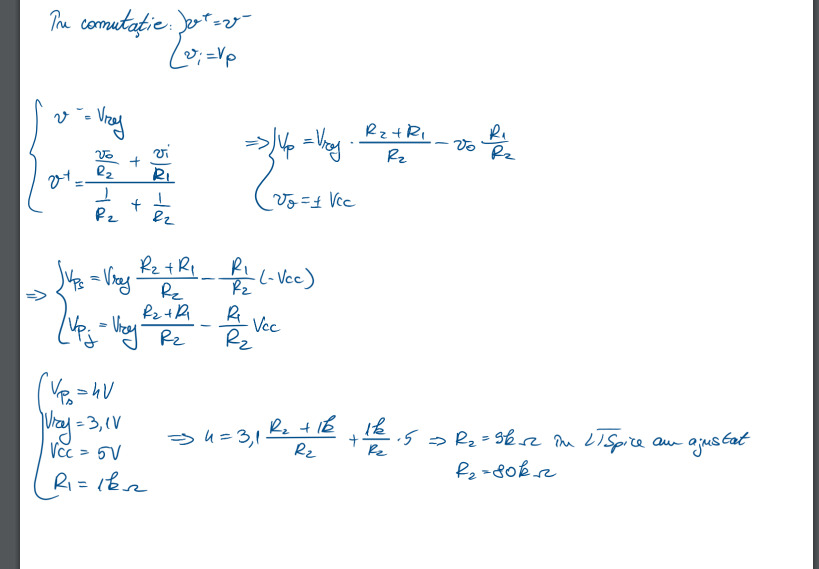 În comutație: { v⁺ = v⁻
{ vᵢ = Vp
{ v⁻ = Vref
v⁺ = (v₀/R₂ + vᵢ/R₁) / (1/R₂ + 1/R₂)
=> { Vp = Vref · (R₂ + R₁)/R₂ − v₀ R₁/R₂
{ v₀ = ± Vcc
=> { Vps = Vref (R₂ + R₁)/R₂ − R₁/R₂ (−Vcc)
{ Vpj = Vref (R₂ + R₁)/R₂ − R₁/R₂ Vcc
{ Vps = 4V
Vref = 3,1V
Vcc = 5V
R₁ = 1kΩ
=> 4 = 3,1 (R₂ + 1k)/R₂ + 1k/R₂ · 5 => R₂ = 9kΩ în LTSpice am ajustat
R₂ = 80kΩ